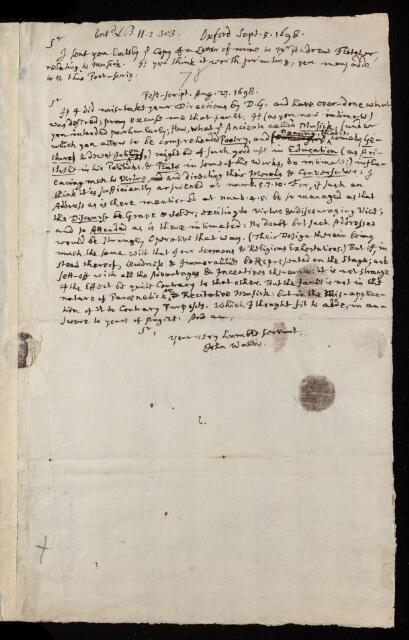 Entd LB. 11.2.303. Oxford Sept. 5. 1698.
Sr
I sent you lately ye Copy of a Letter of mine to Mr Andrew Fletcher,
relating to Musick. If you think it worth printing, you may adde
to it this Post-scrip.
78
Post-script. Aug. 27. 1698.
Sr
If I did mistake your Directions by D.G. and have over-done what
was desired; pray excuse me that fault. If (as you now intimate)
you intended particularly, How, what ye Ancients called Musick, (under
which you allow to be comprehended Poetry, and Dancing, that is,
) might be of such good use in Education (as Ari-
stotle in his Politicks, & Plato in some of his Works, do intimate;) influ-
encing men to Virtue, and directing their Morals & Converse: I
think it is sufficiently answered at numb. 5.7.10. For, if such an
Address as is there mentioned at numb. 4.5. be so managed as that
the Discourse be Grave & sober, exciting to Virtue & discouraging Vice;
and so attended as is there intimated: No doubt but such Addresses
would be strongly Operative that way. (Their Design therein being
much the same with that of our Sermons & Religious Exhortations.) But if, in
stead thereof, Lewdness & Immoralities be Represented on the Stage; and
sett-off with all the Advantages & Incentives thereunto: it is not strange
if the Effect be quite Contrary to that other. But the fault is not in the
nature of Parænetick or Recitative Musick: but in the Mis-applica-
tion of it to Contrary Purposes. Which I thought fit to adde, in an-
swere to yours of Aug. 25. And am,
Sr,
your very humble servant,
John Wallis.